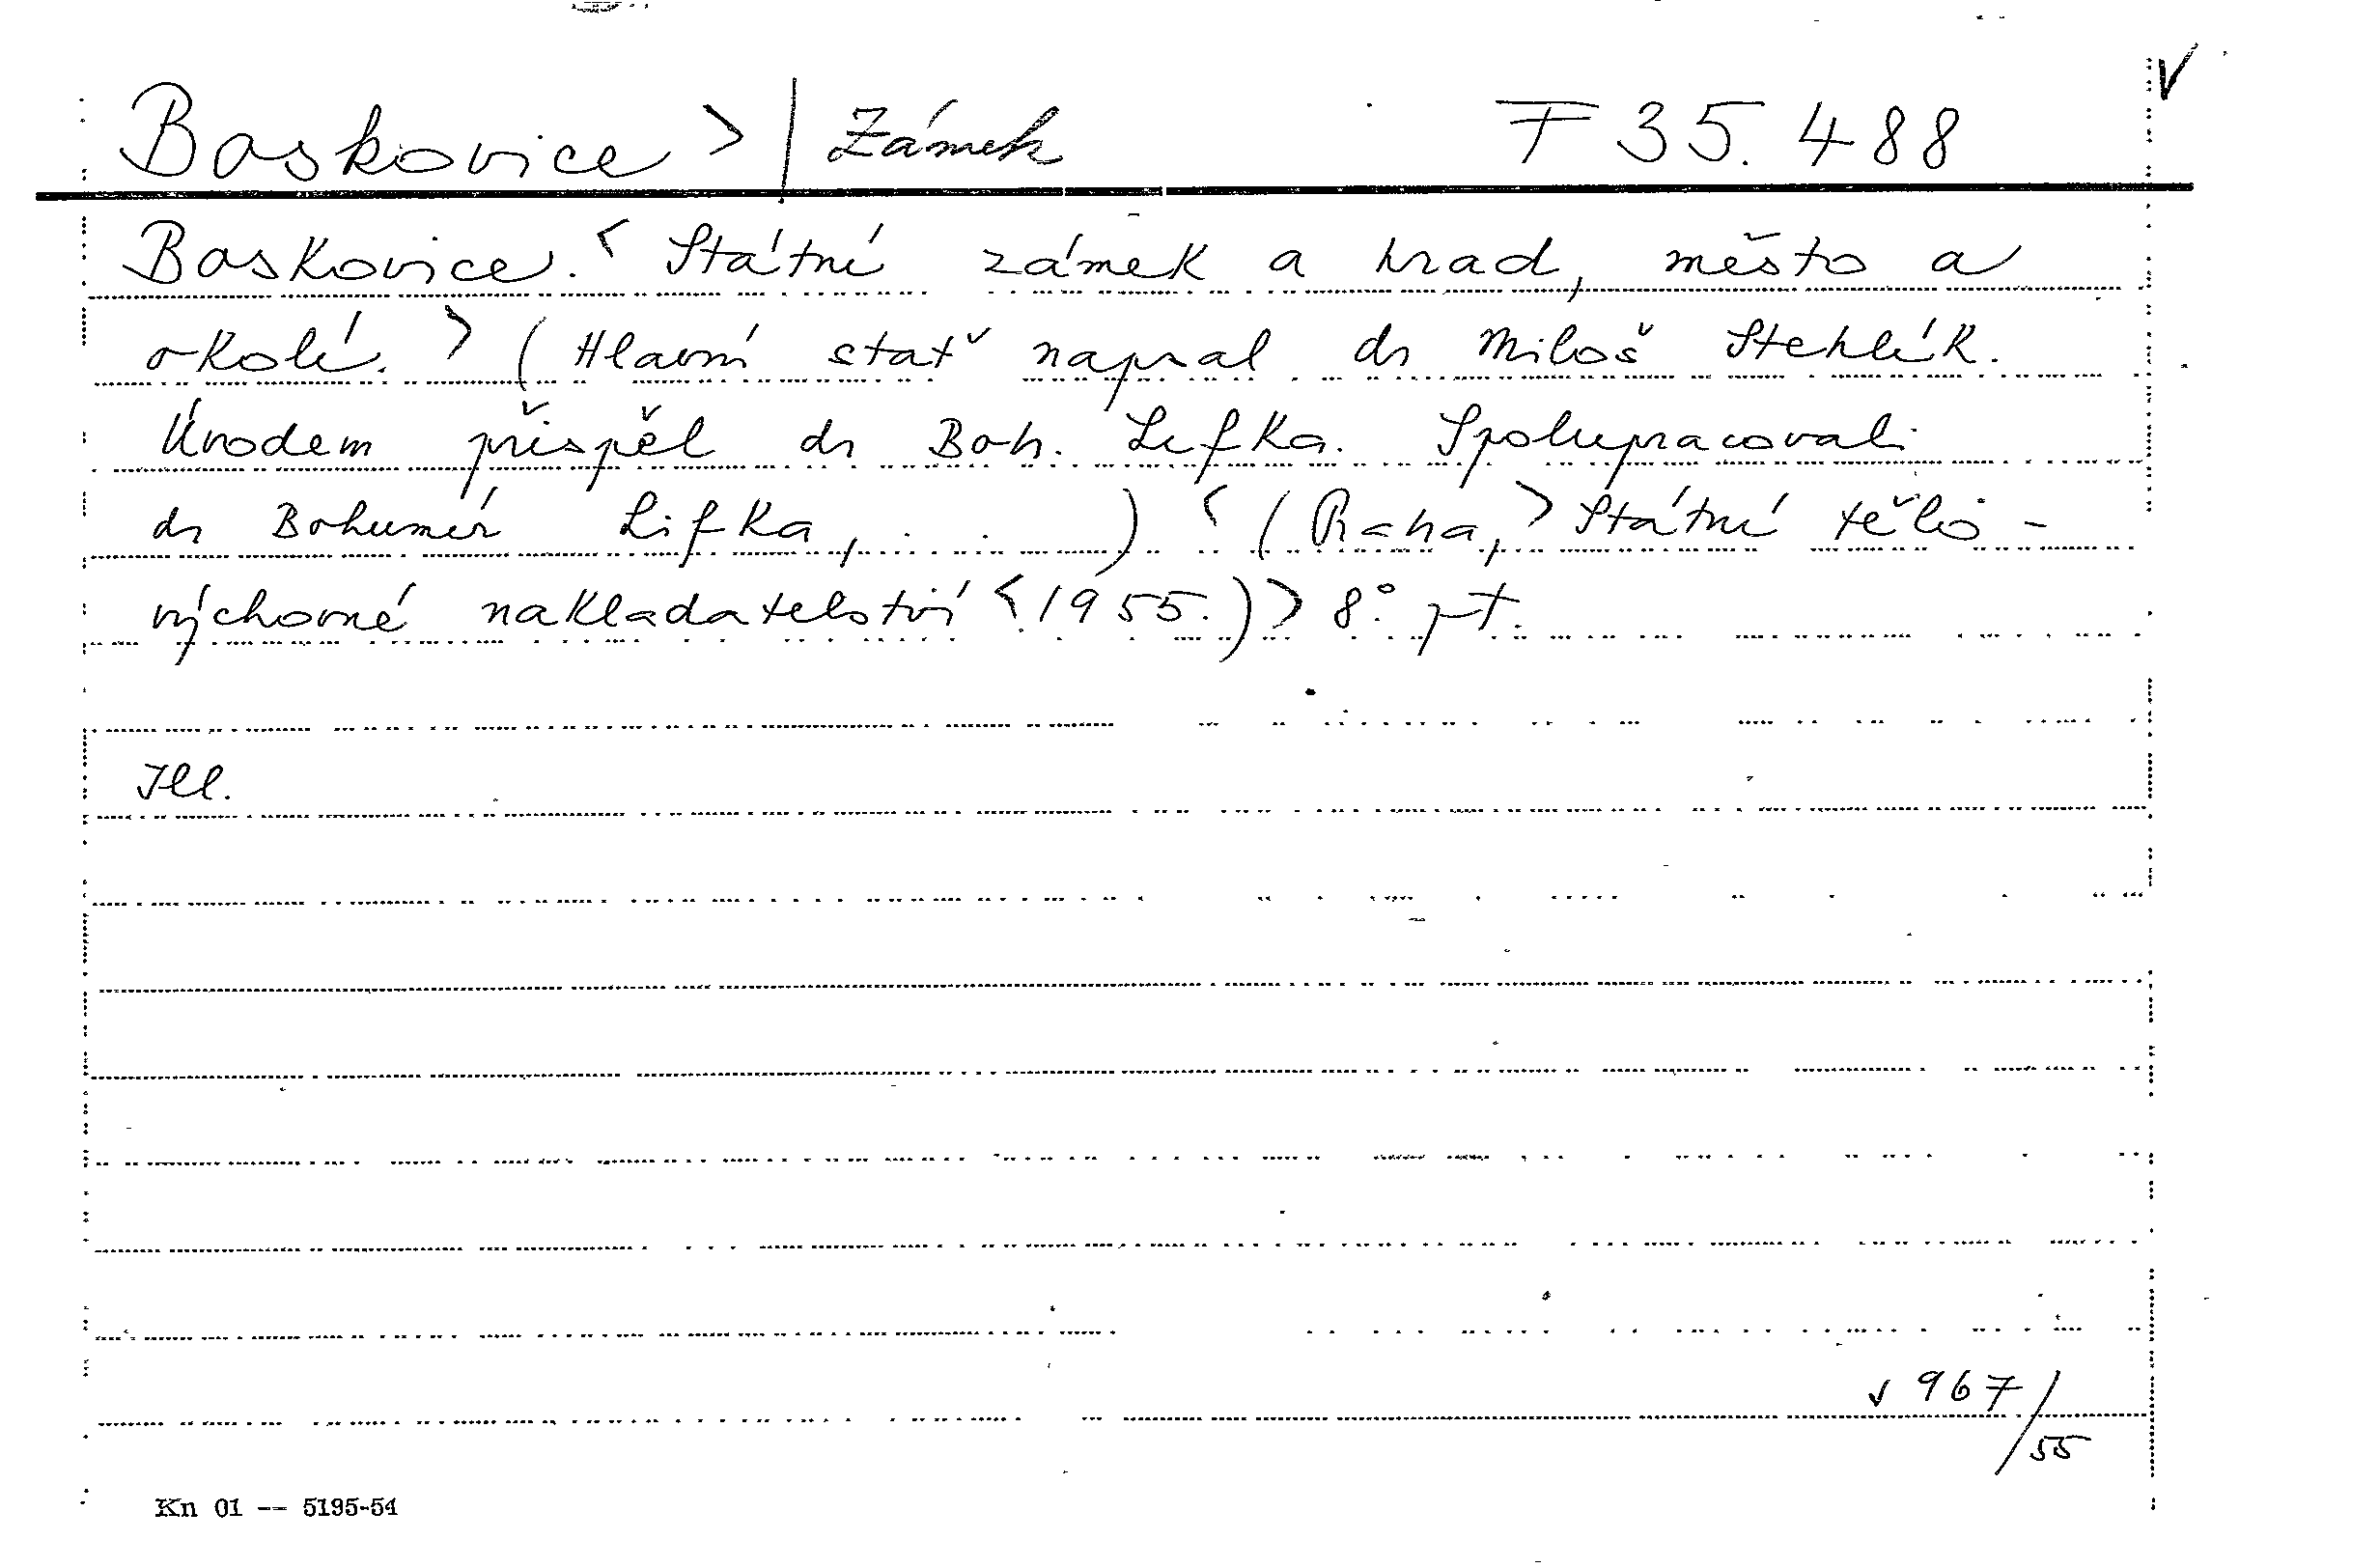 Boskovice > / Zámek F 35.488 V
Boskovice. < Státní zámek a hrad, město a
okolí. > (Hlavní stať napsal dr Miloš Stehlík.
Úvodem přispěl dr Boh. Lifka. Spolupracovali
dr Bohumír Lifka, . . .) < (Praha, > Státní tělo-
výchovné nakladatelství < 1955.) > 8°. pt.
Ill.
√ 967/55
Kn 01 -- 5195-54